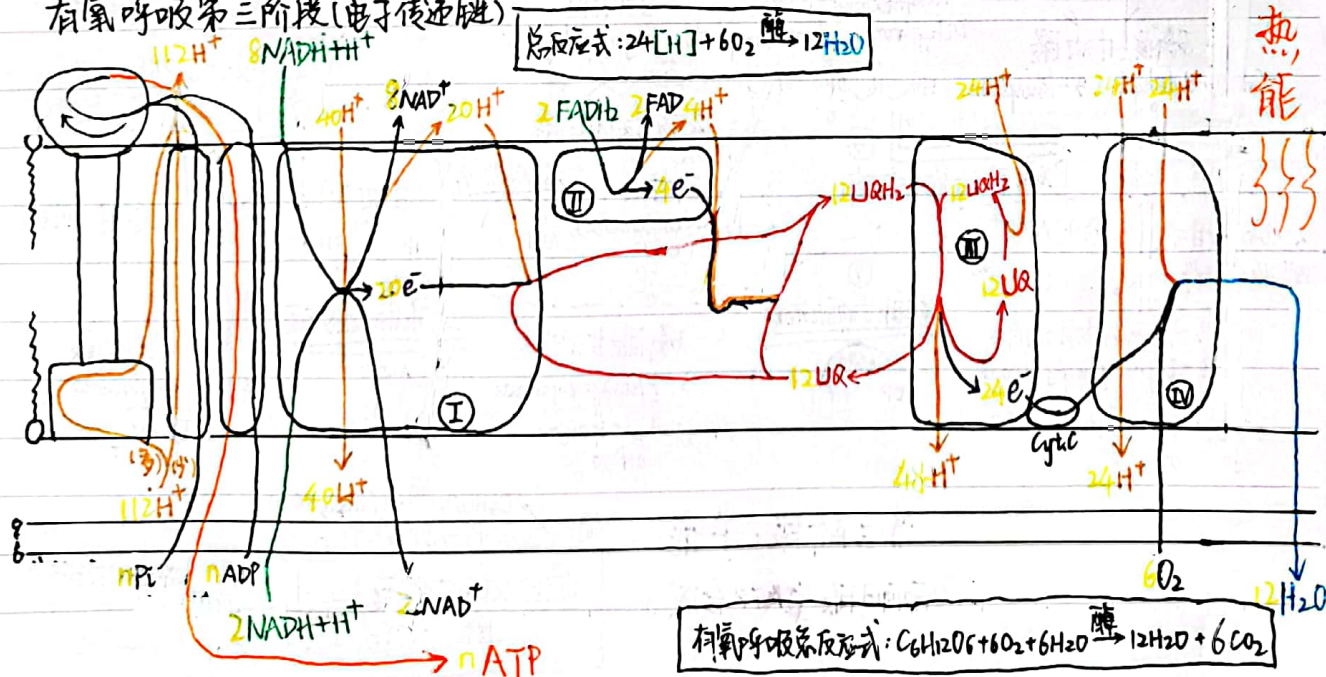 有氧呼吸第三阶段(电子传递链)
总反应式:24[H]+6O₂ 酶→ 12H₂O
热能
112H⁺
8NADH+H⁺
40H⁺
8NAD⁺
20H⁺
2FADH₂
2FAD
4H⁺
24H⁺
24H⁺
24H⁺
Ⅱ
4e⁻
12UQH₂
12UQH₂
Ⅲ
20e⁻
12UQ
12UQ
24e⁻
Ⅰ
Ⅳ
Cyt.C
(多)
(少)
112H⁺
40H⁺
48H⁺
24H⁺
nPi
nADP
2NADH+H⁺
2NAD⁺
6O₂
12H₂O
nATP
有氧呼吸总反应式:C₆H₁₂O₆+6O₂+6H₂O 酶→ 12H₂O+6CO₂